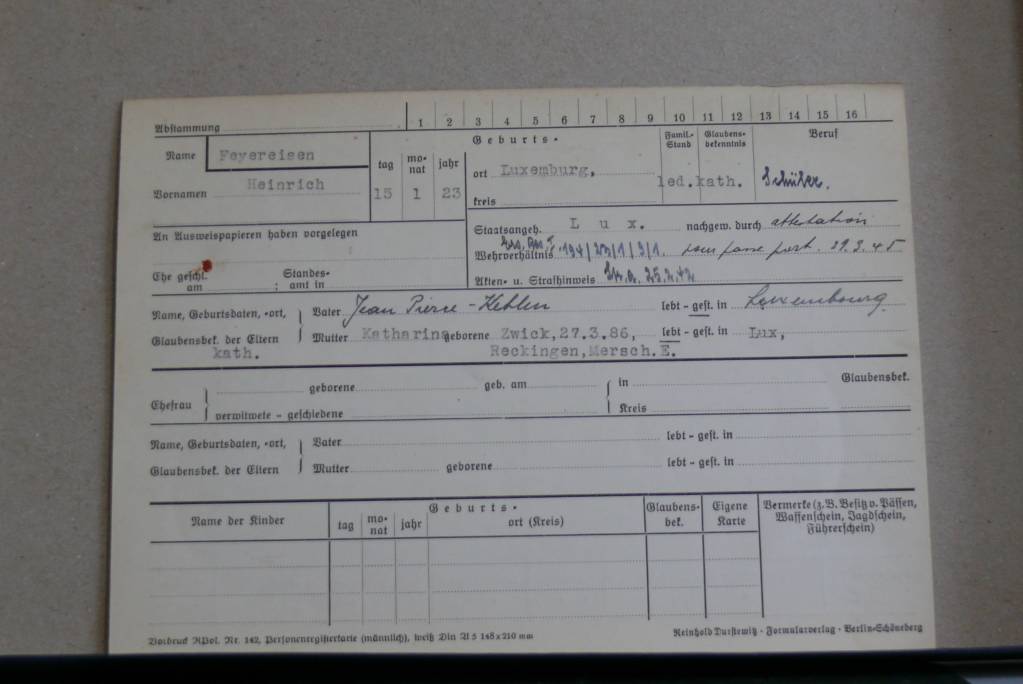 Abstammung 1 2 3 4 5 6 7 8 9 10 11 12 13 14 15 16
Name Feyereisen
Vornamen Heinrich
tag mo-nat jahr
15 1 23
Geburts-
ort Luxemburg,
kreis
Famil.-Stand
led.
Glaubens-bekenntnis
kath.
Beruf
Schüler.
An Ausweispapieren haben vorgelegen
Staatsangeh. Lux. nachgew. durch attestation
Wehrverhältnis 194/23/1/3/1. 29.3.45
Ehe geschl. am ; Standes-amt in
Akten- u. Strafhinweis 25.2.42
Name, Geburtsdaten, -ort, Vater Jean Pierre - lebt - gest. in Luxembourg
Glaubensbek. der Eltern Mutter Katharina geborene Zwick, 27.3.86, lebt - gest. in Lux,
kath. Reckingen, Mersch. E.
Ehefrau geborene geb. am in Glaubensbek.
verwitwete - geschiedene Kreis
Name, Geburtsdaten, -ort, Vater lebt - gest. in
Glaubensbek. der Eltern Mutter geborene lebt - gest. in
Name der Kinder
Geburts-
tag mo-nat jahr ort (Kreis)
Glaubens-bek.
Eigene Karte
Vermerke (z.B. Besitz v. Pässen,
Waffenschein, Jagdschein,
Führerschein)
Vordruck RPol. Nr. 142, Personenregisterkarte (männlich), weiß Din A 5 148x210 mm
Reinhold Durstewitz · Formularverlag · Berlin-Schöneberg